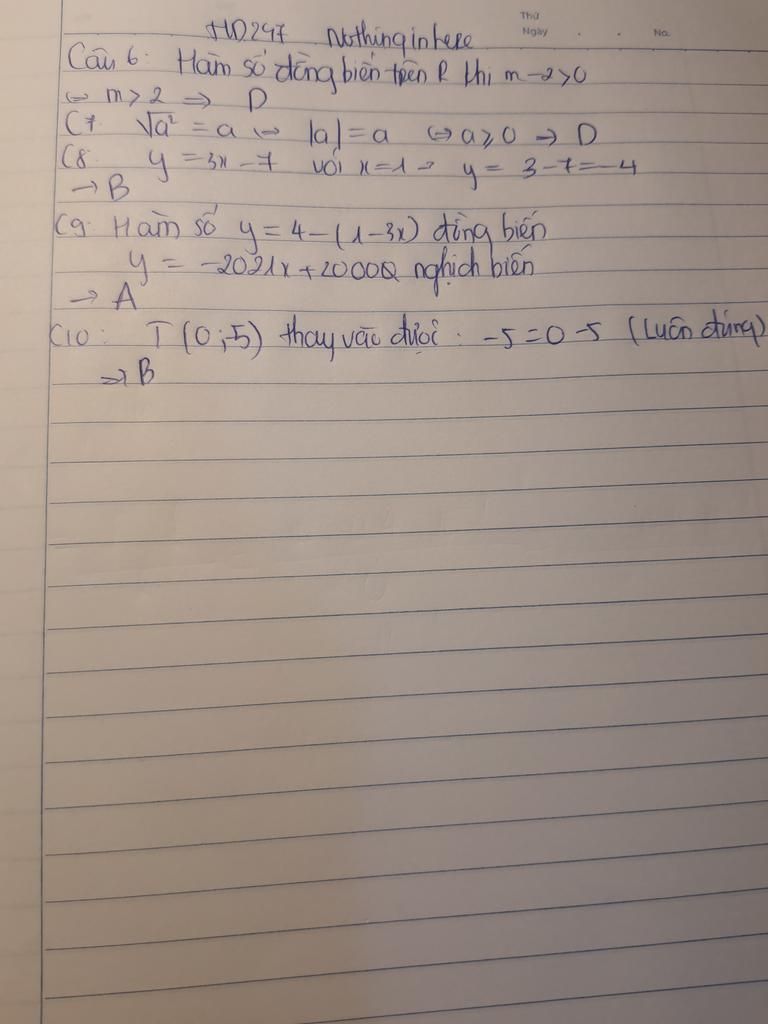 HD247 Nothinginhere
Thứ
Ngày . . No.
Câu 6: Hàm số đồng biến trên R khi m-2>0
⇔ m > 2 ⇒ D
C7 √a² = a ⇔ |a| = a ⇔ a ≥ 0 → D
C8 y = 3x - 7 với x = 1 → y = 3 - 7 = -4
→ B
C9: Hàm số y = 4 - (1 - 3x) đồng biến
y = -2021x + 2000 nghịch biến
→ A
C10: T (0;-5) thay vào được: -5 = 0 - 5 (Luôn đúng)
⇒ B